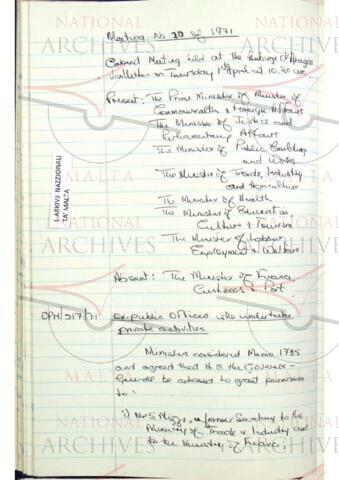 Meeting No 20 of 1971
Cabinet Meeting held at the Auberge d'Aragon
Valletta on Thursday 1st April at 10.30 am.
Present: The Prime Minister & Minister of
Commonwealth & Foreign Affairs
The Minister of Justice and
Parliamentary Affairs
The Minister of Public Building
and Works
The Minister of Trade, Industry
and Agriculture
The Minister of Health
The Minister of Education,
Culture & Tourism
The Minister of Labour,
Employment & Welfare
L-ARKIVJI NAZZJONALI
TA' MALTA
Absent: The Minister of Finance,
Customs & Port
OPM/217/71 Ex-public Officers who undertake
private activities
Ministers considered Memo 1795
and agreed that H.E. the Governor-
General be advised to grant permission
to:
i) Mr S , a former Secretary to the
Ministry of Trade & Industry and
to the Ministry of Finance,
NATIONAL ARCHIVES
MALTA